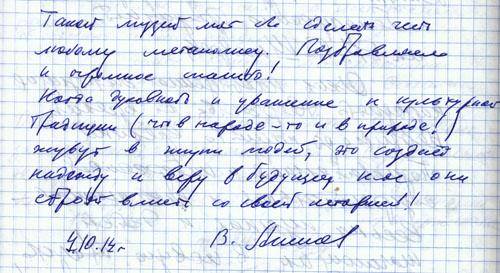 Такой музей мог бы сделать честь
любому мегаполису. Поздравляем
и огромное спасибо!
Когда духовность и уважение к культурной
традиции (что в народе – то и в природе!)
живут в жизни людей, это создает
надежду и веру в будущее, кое они
строят вместе со своей историей!
4.10.14г В.